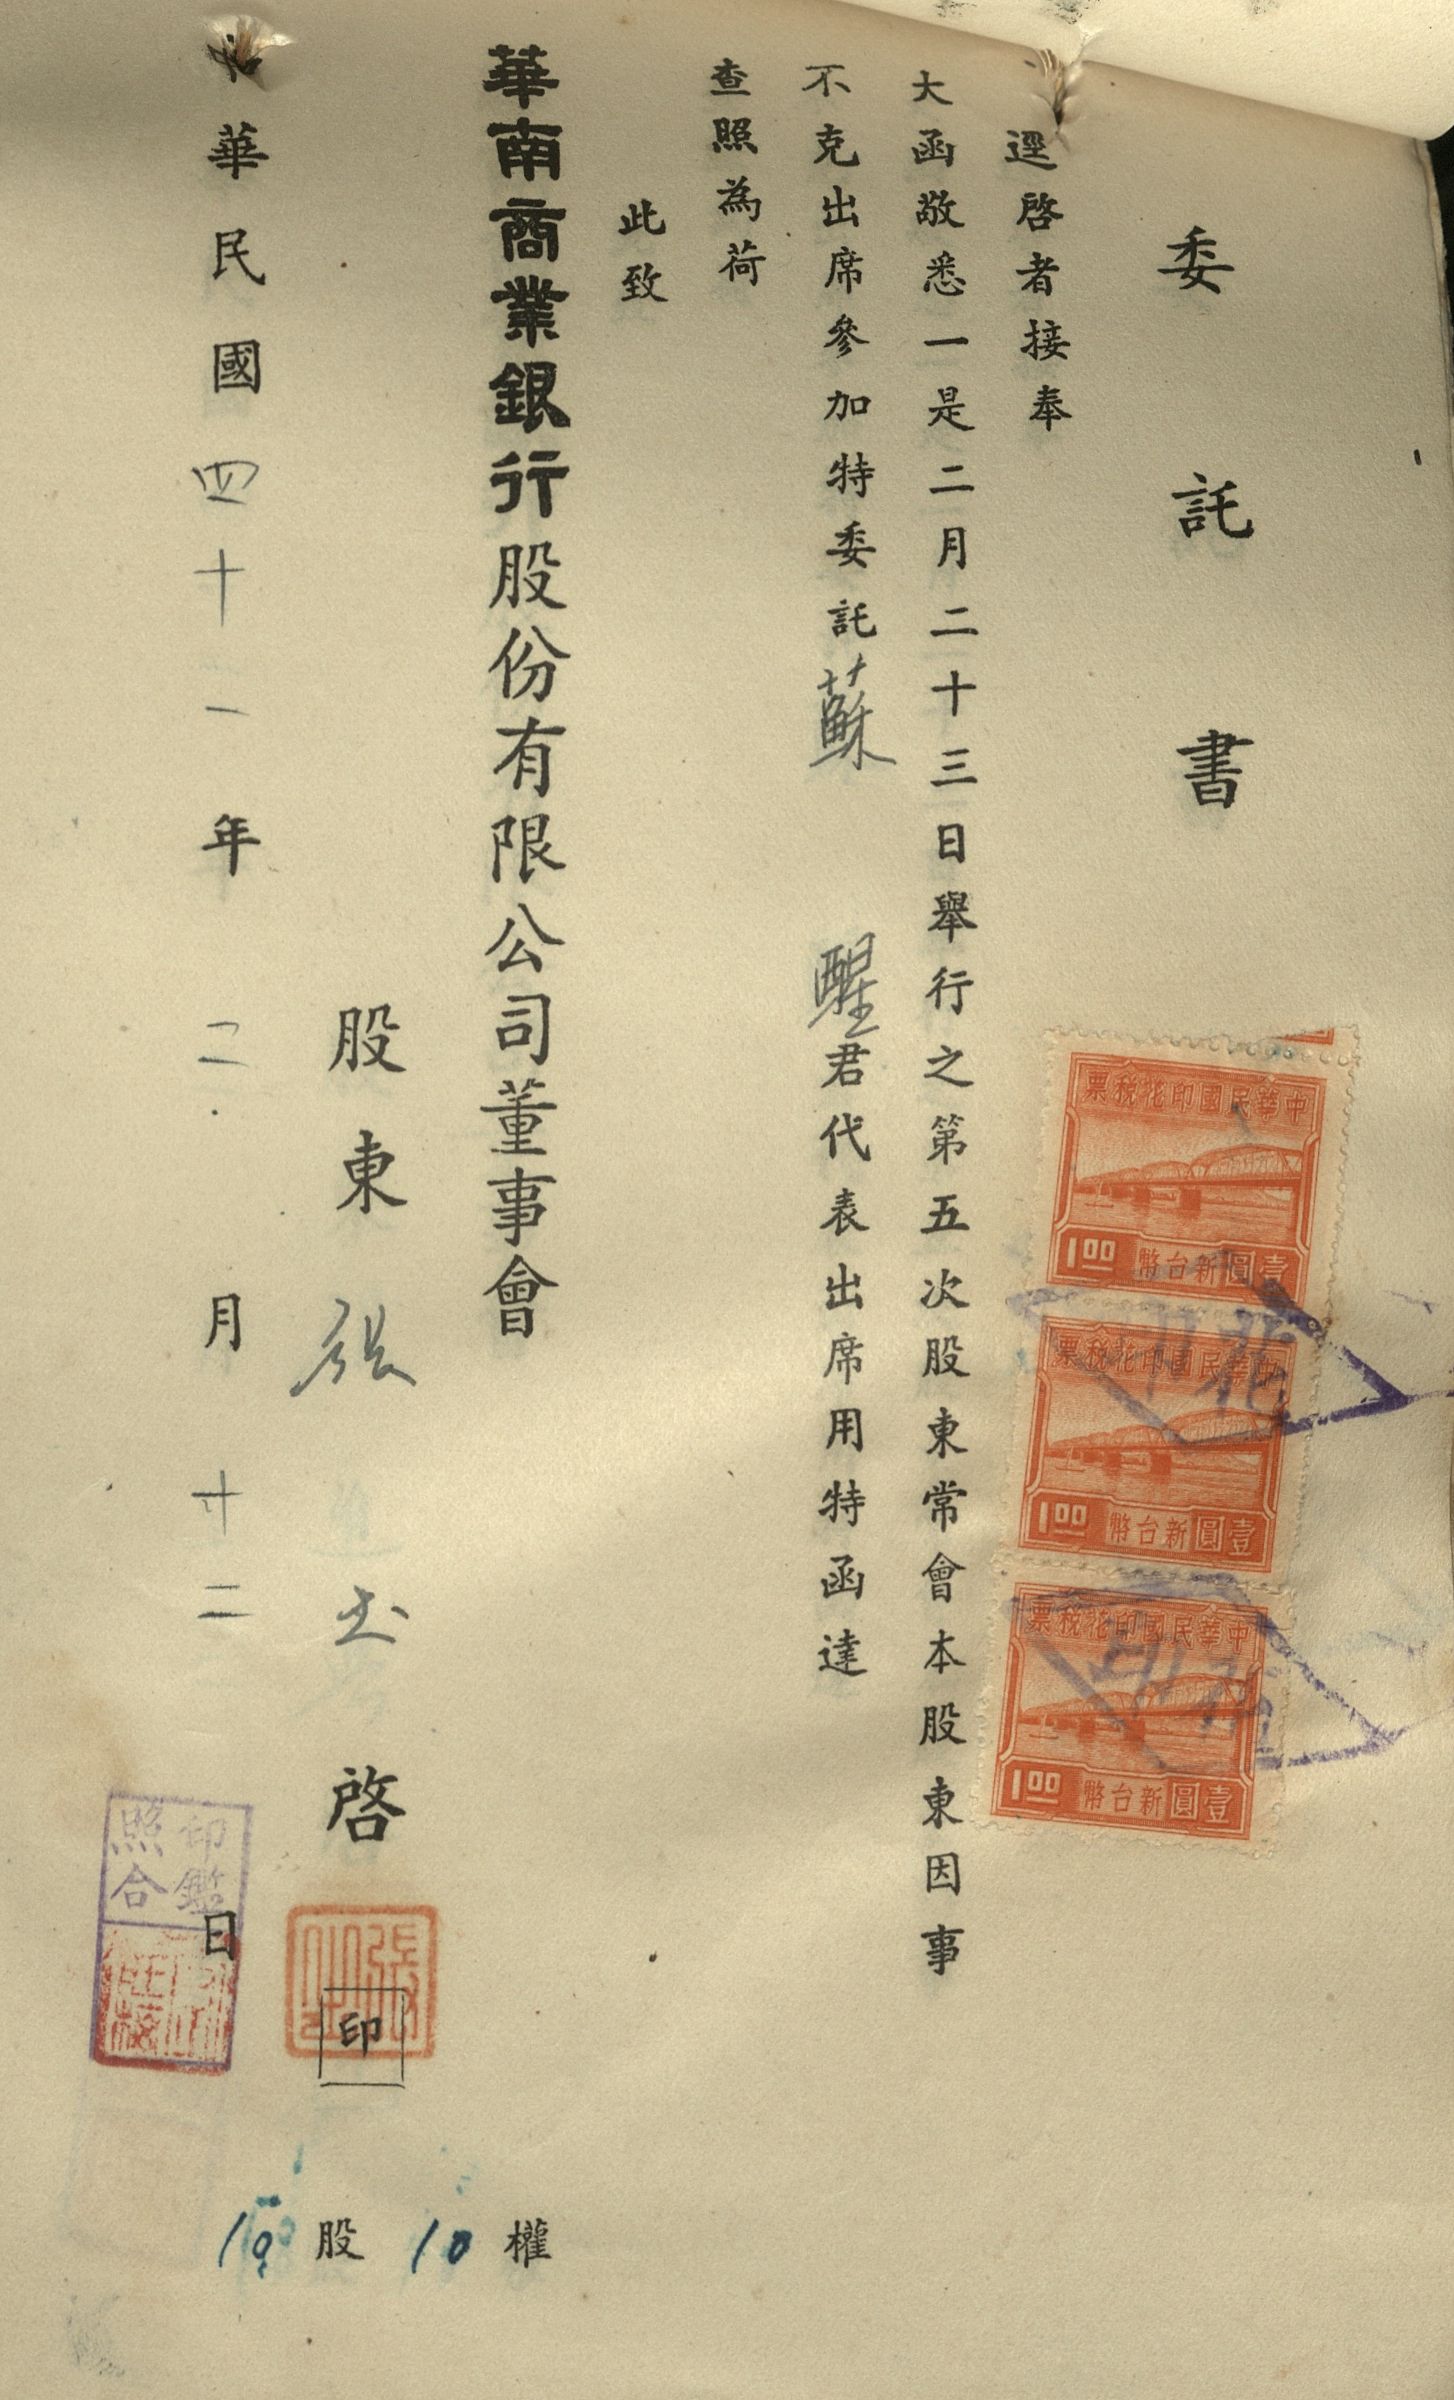 委託書
逕啓者接奉
大函敬悉一是二月二十三日舉行之第五次股東常會本股東因事
不克出席參加特委託蘇醒君代表出席用特函達
查照為荷
此致
華南商業銀行股份有限公司董事會
股東張玉啓
印
中華民國四十一年二月十二日
印鑑
照合
10股10權
票稅花印國民華中
1.00 幣台新圓壹
票稅花印國民華中
1.00 幣台新圓壹
票稅花印國民華中
1.00 幣台新圓壹